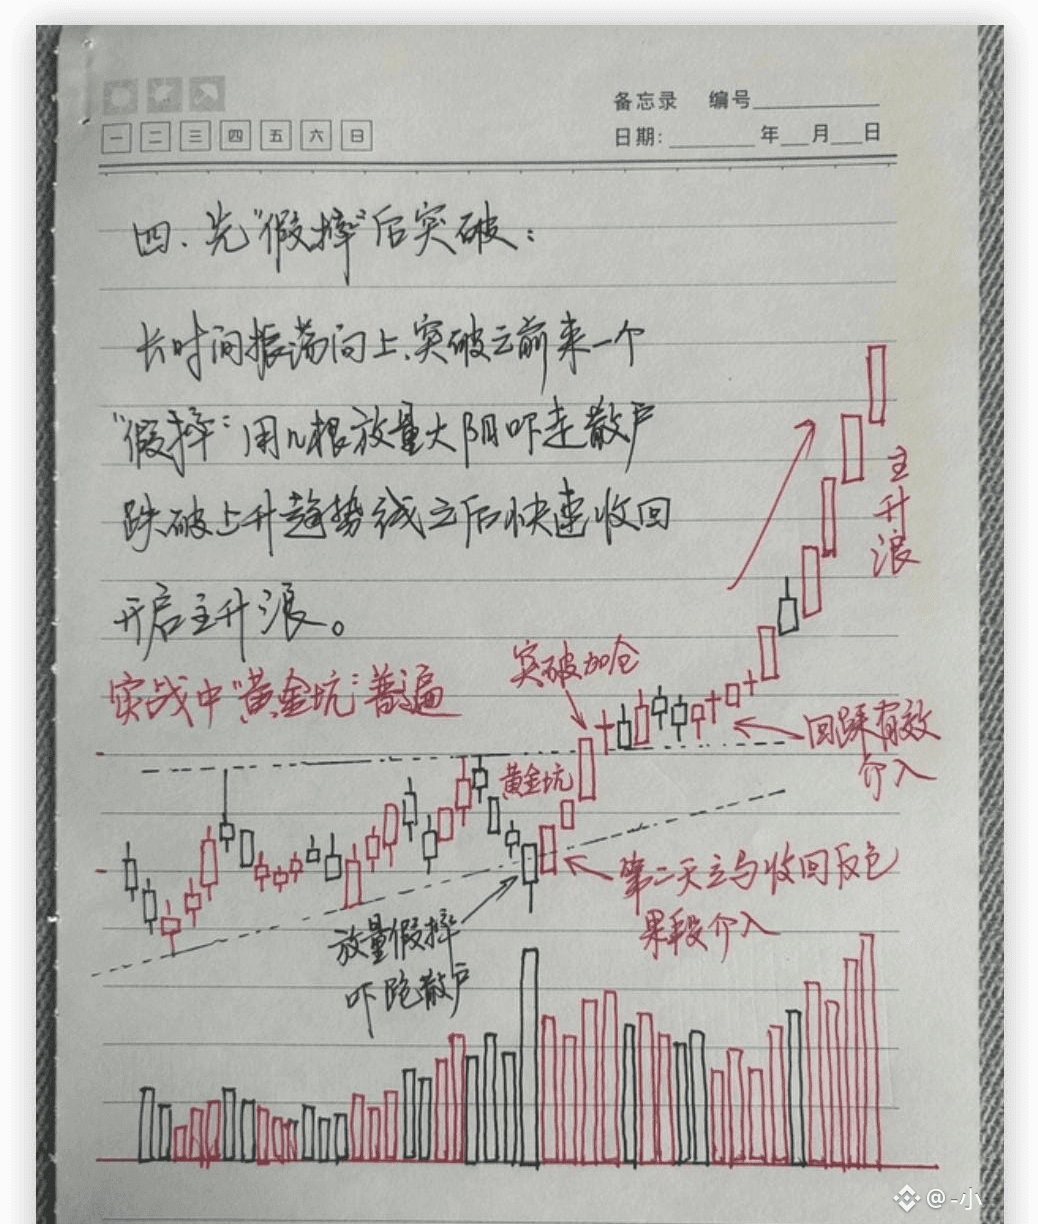 备忘录 编号
一 二 三 四 五 六 日
日期: 年 月 日
四、先"假摔"后突破:
长时间振荡向上、突破之前来一个
"假摔"用几根放量大阴吓走散户
跌破上升趋势线之后快速收回
开启主升浪。
主升浪
实战中"黄金坑"普遍
突破加仓
回踩有效
介入
黄金坑
第二天立马收回反包
果断介入
放量假摔
吓跑散户
@-小